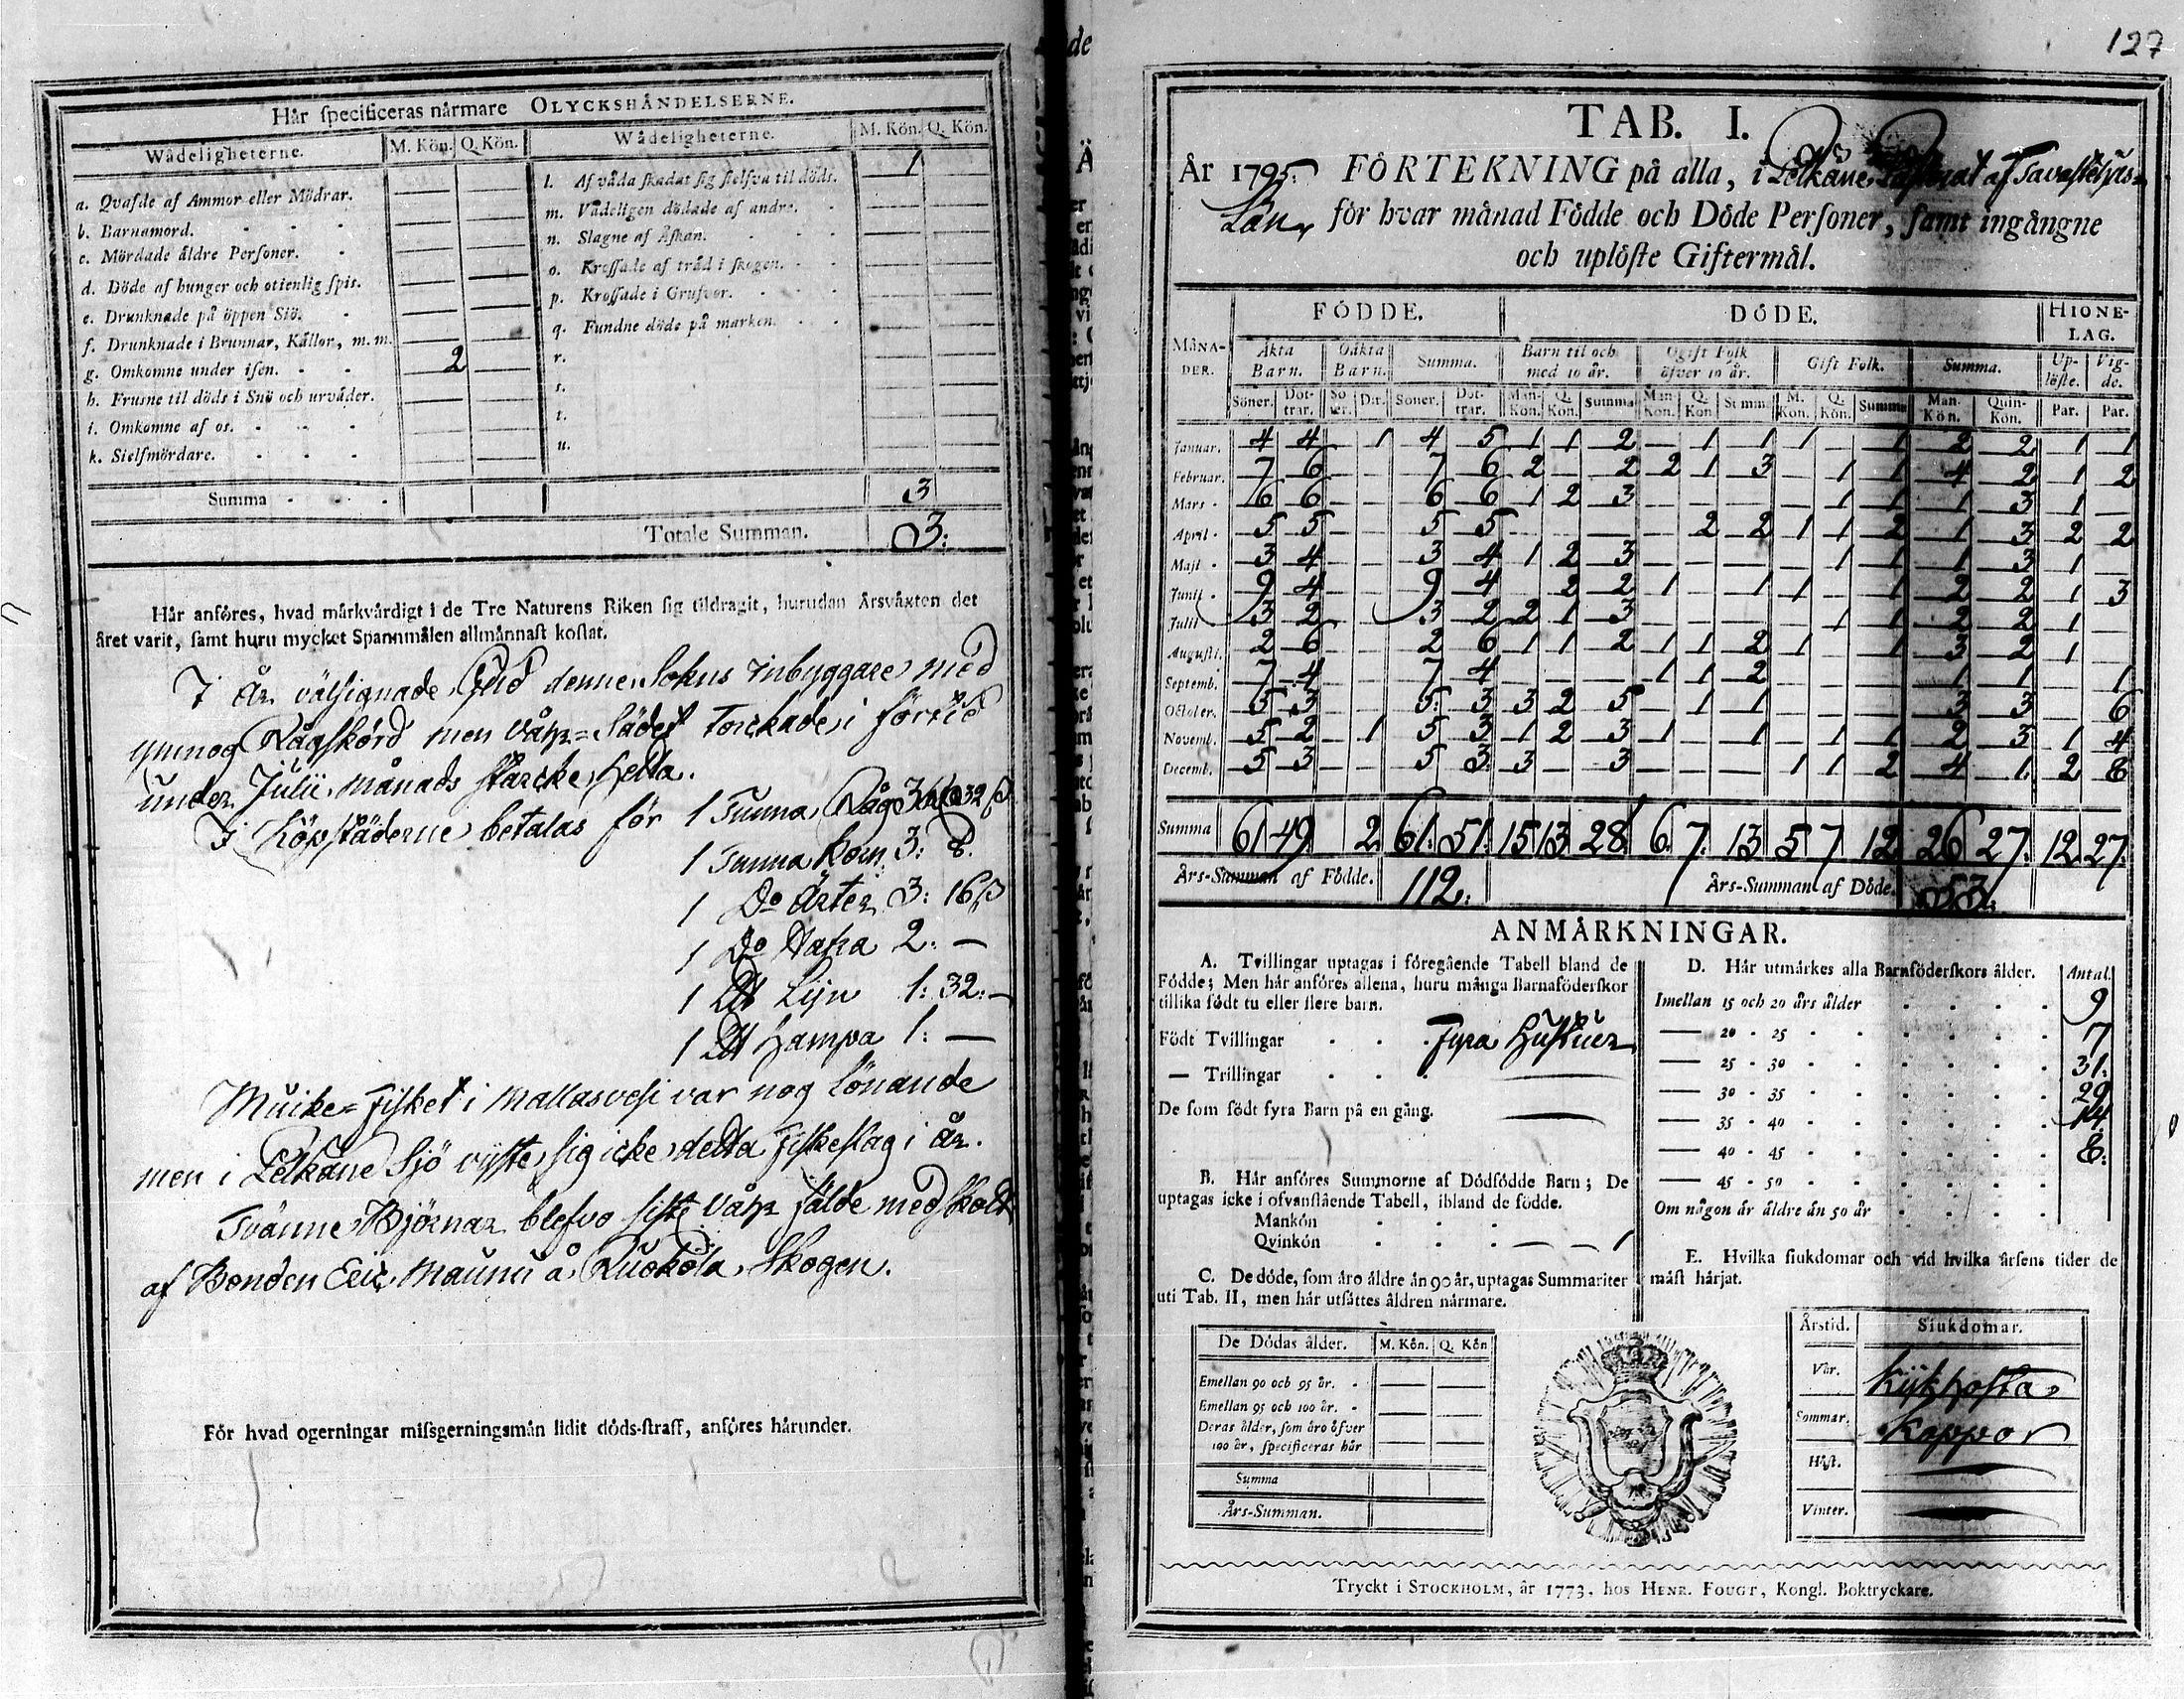 Här specificeras närmare OLYCKSHÄNDELSERNE.
Wådeligheterne. M. Kön. Q. Kön. Wådeligheterne. M. Kön. Q. Kön.
a. Qvafde af Ammor eller Mödrar. — —
b. Barnamord. — —
c. Mördade äldre Personer. — —
d. Döde af hunger och otienlig spis. — —
e. Drunknade på öppen Siö. — —
f. Drunknade i Brunnar, Källor, m. m. — —
g. Omkomne under isen. 2 —
h. Frusne til döds i Snö och urväder. — —
i. Omkomne af os. — —
k. Sielfmördare. — —
l. Af våda skadat sig sielfva til döds. 1 —
m. Vådeligen dödade af andre. — —
n. Slagne af Åskan. — —
o. Krossade af träd i skogen. — —
p. Krossade i Grufvor. — —
q. Fundne döde på marken. — —
r. — —
s. — —
t. — —
u. — —
Summa 3
Totale Summan. 3:
Här anföres, hvad märkvärdigt i de Tre Naturens Riken sig tildragit, hurudan Årsväxten det
året varit, samt huru mycket Spannmålen allmännast kostat.
I År välsignade Gud denne Lokns inbyggare med
ymnog Rågskörd men Våhr=Sädet torckade i förtid
under Julii månads starcke hetta.
I Köpstäderne betalas för 1 Tunna Råg 3 32 ß
1 Tunna Korn 3: 8.
1 Do Ärter 3: 16 ß
1 Do Hafra 2: —
1 L℔ Lijn 1: 32: —
1 L℔ Hampa 1: —
Muike=fisket i Mallasvesi var nog lönande
men i Pelkäne Sjö viste sig icke detta fiskeslag i år.
Tvänne Björnar blefvo siste Våhr fälde med skott
af Bonden Eric Maunu å Ruokola Skogen.
För hvad ogerningar missgerningsmän lidit döds-straff, anföres härunder.
127
TAB. I.
År 1795. FÖRTEKNING på alla, i Pelkäne Pastorat af Tavastehus
Län för hvar månad Födde och Döde Personer, samt ingångne
och uplöste Giftermål.
FÖDDE. DÖDE. HIONE-
LAG.
MÅNA-
DER. Äkta
Barn. Oäkta
Barn. Summa. Barn til och
med 10 år. Ogift Folk
öfver 10 år. Gift Folk. Summa. Up-
löste. Vig-
de.
Söner. Döt-
trar. Sö
ner. Dtr. Söner. Döt-
trar. Man-
Kön. Q.
Kön. Summa Man
Kön. Q.
Kön Summa M.
Kön. Q.
Kön. Summa Man.
Kön. Quin-
Kön. Par. Par.
Januar. 4 4 — 1 4 5 1 1 2 — 1 1 1 — 1 2 2 1 1
Februar. 7 6 — — 7 6 2 — 2 2 1 3 — 1 1 4 2 1 2
Mars 6 6 — — 6 6 1 2 3 — — — — 1 1 1 3 1 —
April 5 5 — — 5 5 — — — — 2 2 1 1 2 1 3 2 2
Maji 3 4 — — 3 4 1 2 3 — — — — 1 1 1 3 1 —
Junii 9 4 — — 9 4 — 2 2 1 — 1 1 — 1 2 2 1 3
Julii 3 2 — — 3 2 2 1 3 — — — — 1 1 2 2 1 —
Augusti. 2 6 — — 2 6 1 1 2 1 1 2 1 — 1 3 2 1 —
Septemb. 7 4 — — 7 4 — — — 1 1 2 — — — 1 1 — 1
October. 5 3 — — 5 3 3 2 5 — 1 1 — — — 3 3 — 6
Novemb. 5 2 — 1 5 3 1 2 3 1 — 1 — 1 1 2 3 1 4
Decemb. 5 3 — — 5 3 3 — 3 — — — 1 1 2 4 1 2 8
Summa 61 49 2 61: 51: 15 13 28 6 7 13 5 7 12 26 27: 12 27:
Års-Summan af Födde. 112: Års-Summan af Döde. 53.
ANMÄRKNINGAR.
A. Tvillingar uptagas i föregående Tabell bland de
Födde; Men här anföres allena, huru många Barnaföderskor
tillika födt tu eller flere barn.
Födt Tvillingar Fyra Hustruer
— Trillingar —
De som födt fyra Barn på en gång. —
B. Här anföres Summorne af Dödfödde Barn; De
uptagas icke i ofvanstående Tabell, ibland de födde.
Mankön
Qvinkön — — 1
C. De döde, som äro äldre än 90 år, uptagas Summariter
uti Tab. II, men här utsättes åldren närmare.
De Dödas ålder. M. Kön. Q. Kön
Emellan 90 och 95 år. — —
Emellan 95 och 100 år. — —
Deras ålder, som äro öfver
100 år, specificeras här — —
Summa
Års-Summan.
D. Här utmärkes alla Barnföderskors ålder. Antal.
Imellan 15 och 20 års ålder 9
— 20 - 25 17
— 25 - 30 31:
— 30 - 35 29
— 35 - 40 14
— 40 - 45 8:
— 45 - 50
Om någon är äldre än 50 år
E. Hvilka siukdomar och vid hvilka årsens tider de
mäst härjat.
Årstid. Siukdomar.
Vår. Kijkhosta
Sommar. Koppor
Höst. —
Vinter. —
Tryckt i STOCKHOLM, år 1773, hos HENR. FOUGT, Kongl. Boktryckare.